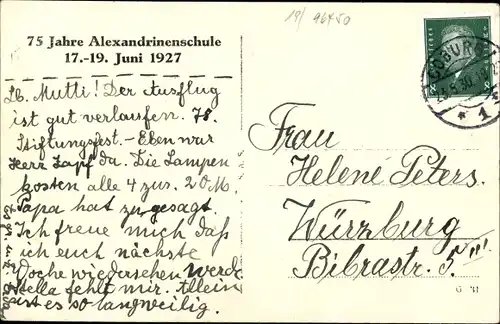 19/96450
75 Jahre Alexandrinenschule
17.-19. Juni 1927
Lb. Mutti! Der Ausflug
ist gut verlaufen. 78.
Stiftungsfest. - Eben war
Herr Zapf da. Die Lampen
kosten alle 4 zus. 20 M.
Papa hat zu gesagt.
Ich freue mich daß
ich euch nächste
Woche wiedersehen werde
Stella fehlt mir. Allein
ist es so langweilig.
Frau
Helene Peters.
Würzburg
Bibrastr. 5.
COBURG
1